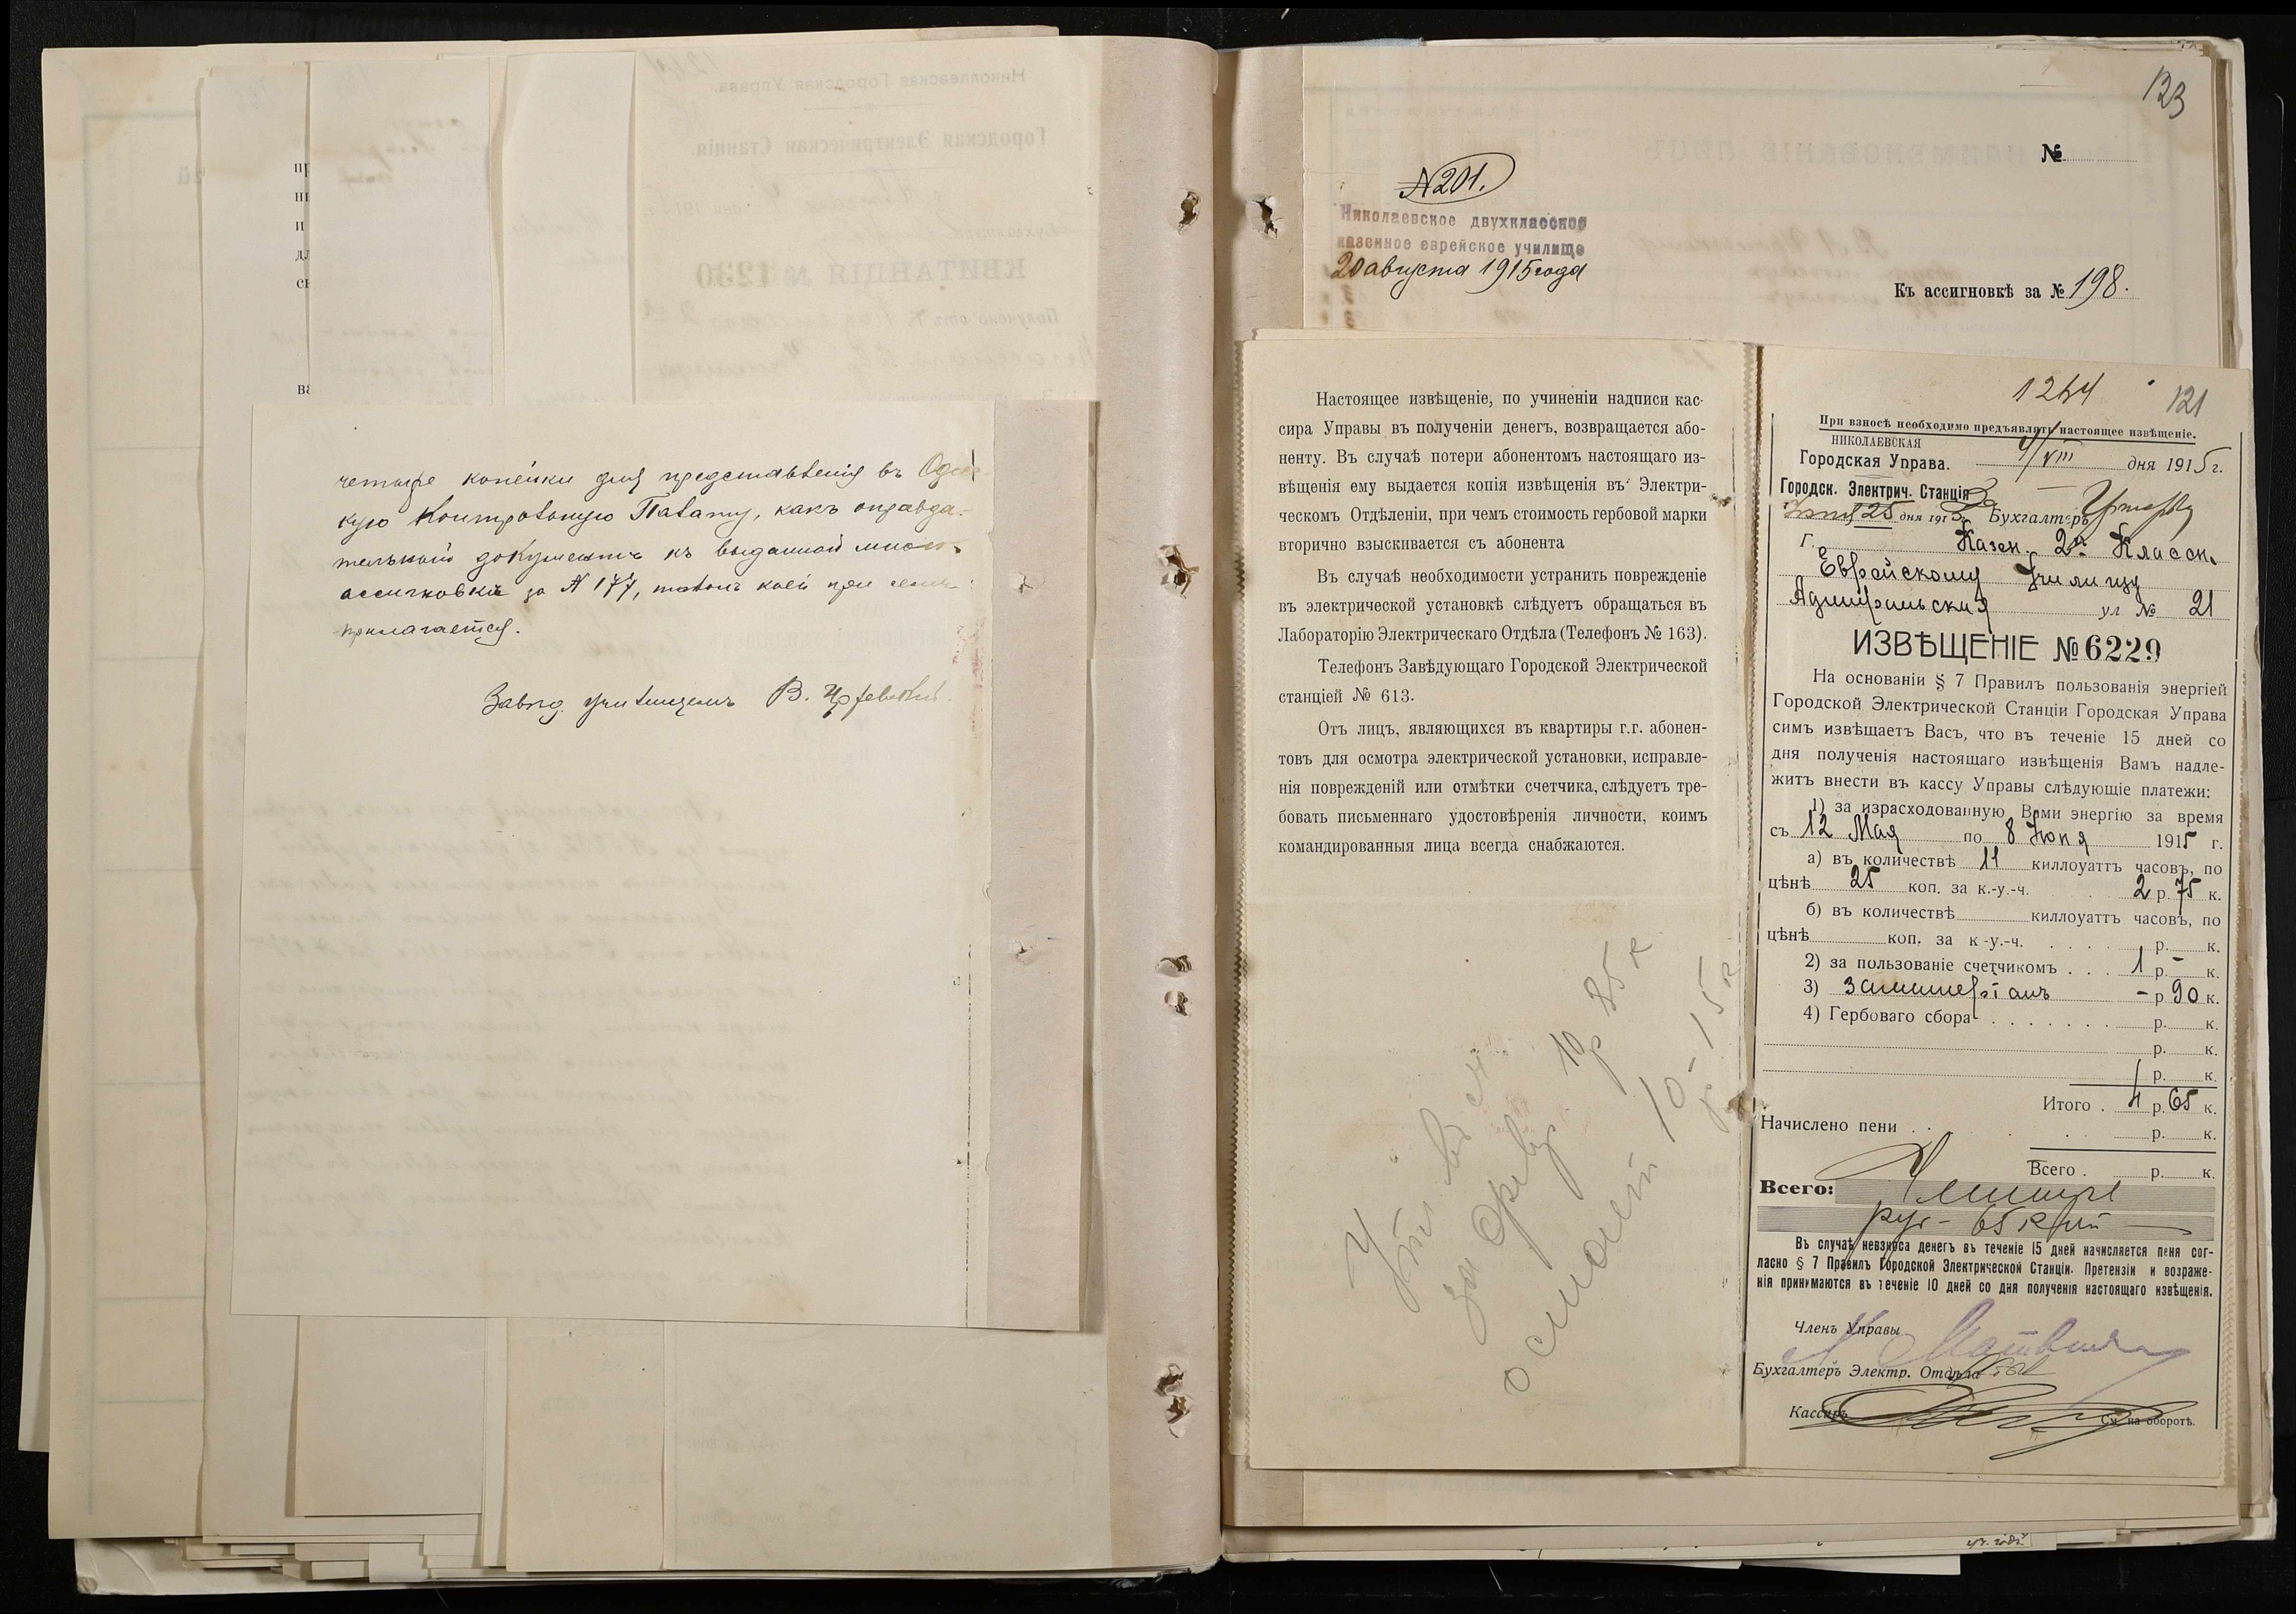 четыре копейки для представленія въ Одес-
кую Контрольную Палату, какъ оправда-
тельный документъ къ выданной мною
ассигновкѣ за № 177, талонъ коей при семъ
прилагается.
Завѣд. училищемъ В.
123
№
№ 201.
Николаевское двухклассное
казенное еврейское училище
20 августа 1915 года
Къ ассигновкѣ за № 198.
Настоящее извѣщеніе, по учиненіи надписи кас-
сира Управы въ полученіи денегъ, возвращается або-
ненту. Въ случаѣ потери абонентомъ настоящаго из-
вѣщенія ему выдается копія извѣщенія въ Электри-
ческомъ Отдѣленіи, при чемъ стоимость гербовой марки
вторично взыскивается съ абонента
Въ случаѣ необходимости устранить поврежденіе
въ электрической установкѣ слѣдуетъ обращаться въ
Лабораторію Электрическаго Отдѣла (Телефонъ № 163).
Телефонъ Завѣдующаго Городской Электрической
станціей № 613.
Отъ лицъ, являющихся въ квартиры г.г. абонен-
товъ для осмотра электрической установки, исправле-
нія поврежденій или отмѣтки счетчика, слѣдуетъ тре-
бовать письменнаго удостовѣренія личности, коимъ
командированныя лица всегда снабжаются.
10 р 25 к
10 - 15 к
121
При взносѣ необходимо предъявлять настоящее извѣщеніе.
НИКОЛАЕВСКАЯ
Городская Управа.
4/VIII дня 1915 г.
Городск. Электрич. Станція
25 дня 1915 Бухгалтеръ
Г. Казен. 2х Классн.
Еврейскому Училищу
Адмиральская ул № 21
ИЗВѢЩЕНІЕ № 6229
На основаніи § 7 Правилъ пользованія энергіей
Городской Электрической Станціи Городская Управа
симъ извѣщаетъ Васъ, что въ теченіе 15 дней со
дня полученія настоящаго извѣщенія Вамъ надле-
житъ внести въ кассу Управы слѣдующіе платежи:
1) за израсходованную Вами энергію за время
съ 12 Мая по 8 Іюня 1915 г.
а) въ количествѣ 11 киллоуаттъ часовъ, по
цѣнѣ 25 коп. за к.-у.-ч. 2 р. 75 к.
б) въ количествѣ киллоуаттъ часовъ, по
цѣнѣ коп. за к-у.-ч. р. к.
2) за пользованіе счетчикомъ . . . 1 р. - к.
3) - р 90 к.
4) Гербоваго сбора . . . . . . . р. к.
р. к.
р. к.
Итого . 4 р. 65 к.
Начислено пени . р. к.
Всего . р. к.
Всего: Четыре
руб - 65 коп
Въ случаѣ невзноса денегъ въ теченіе 15 дней начисляется пеня сог-
ласно § 7 Правилъ Городской Электрической Станціи. Претензіи и возраже-
нія принимаются въ теченіе 10 дней со дня полученія настоящаго извѣщенія.
Членъ Управы
Бухгалтеръ Электр. Отдѣла
Кассиръ
См. на оборотѣ.